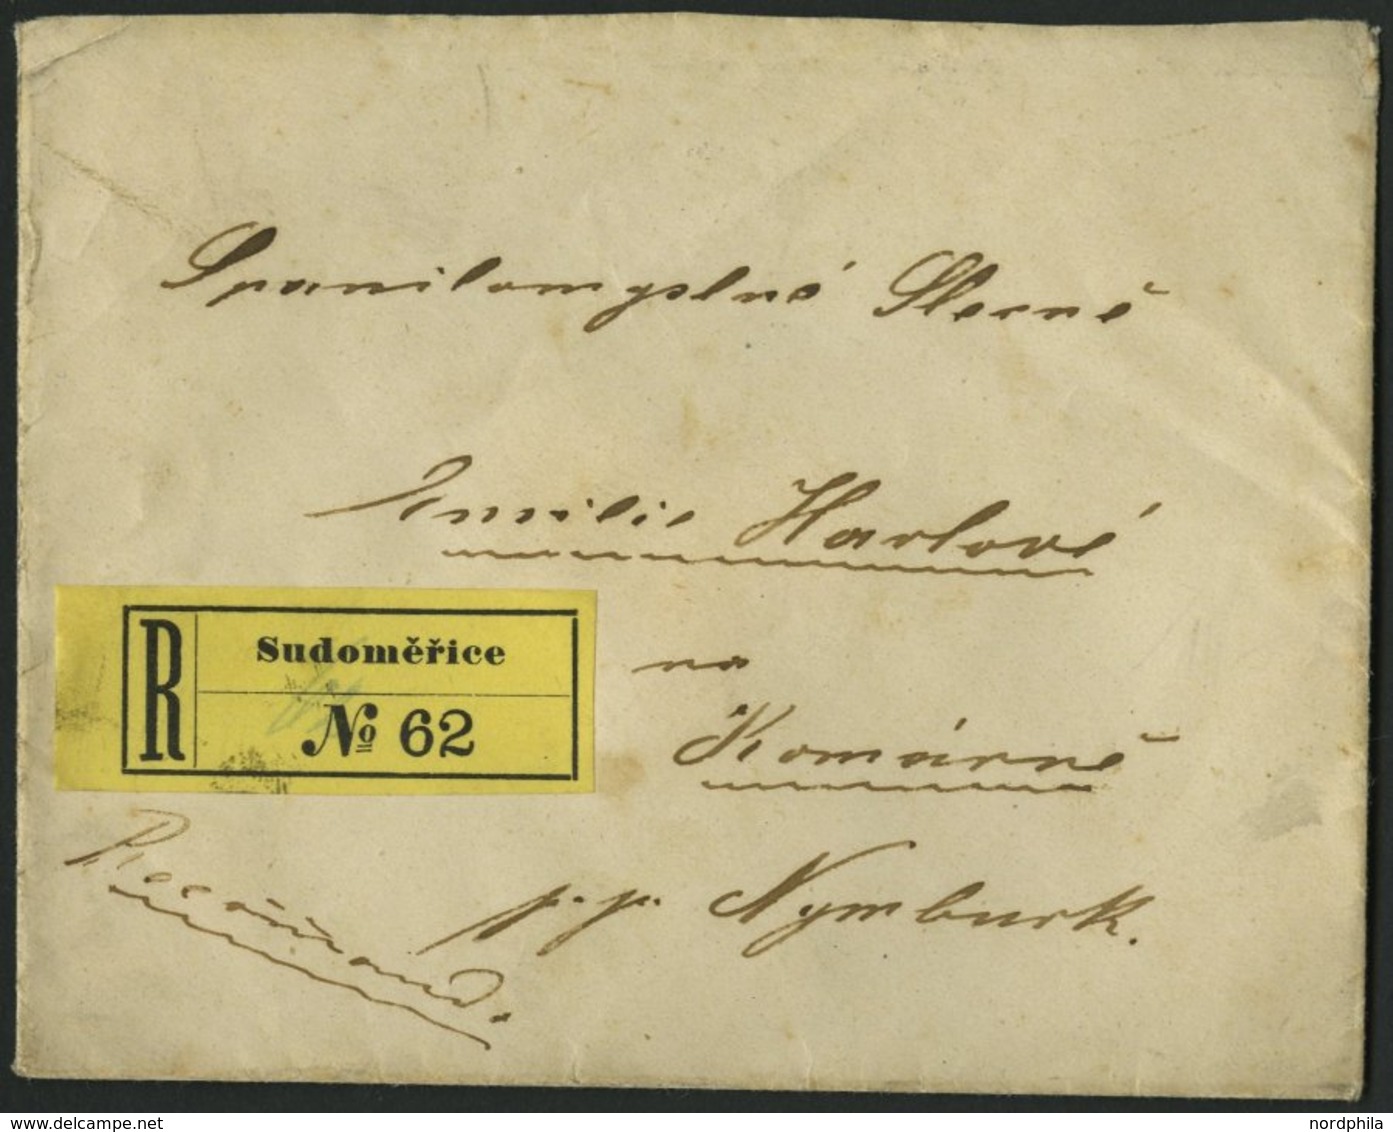 Spanilomyslné Slečně
Emilii Havlové
R
Sudoměřice
No 62
na
Komárně
Recommand.
p. p. Nymburk.
www.delcampe.net
nordphila